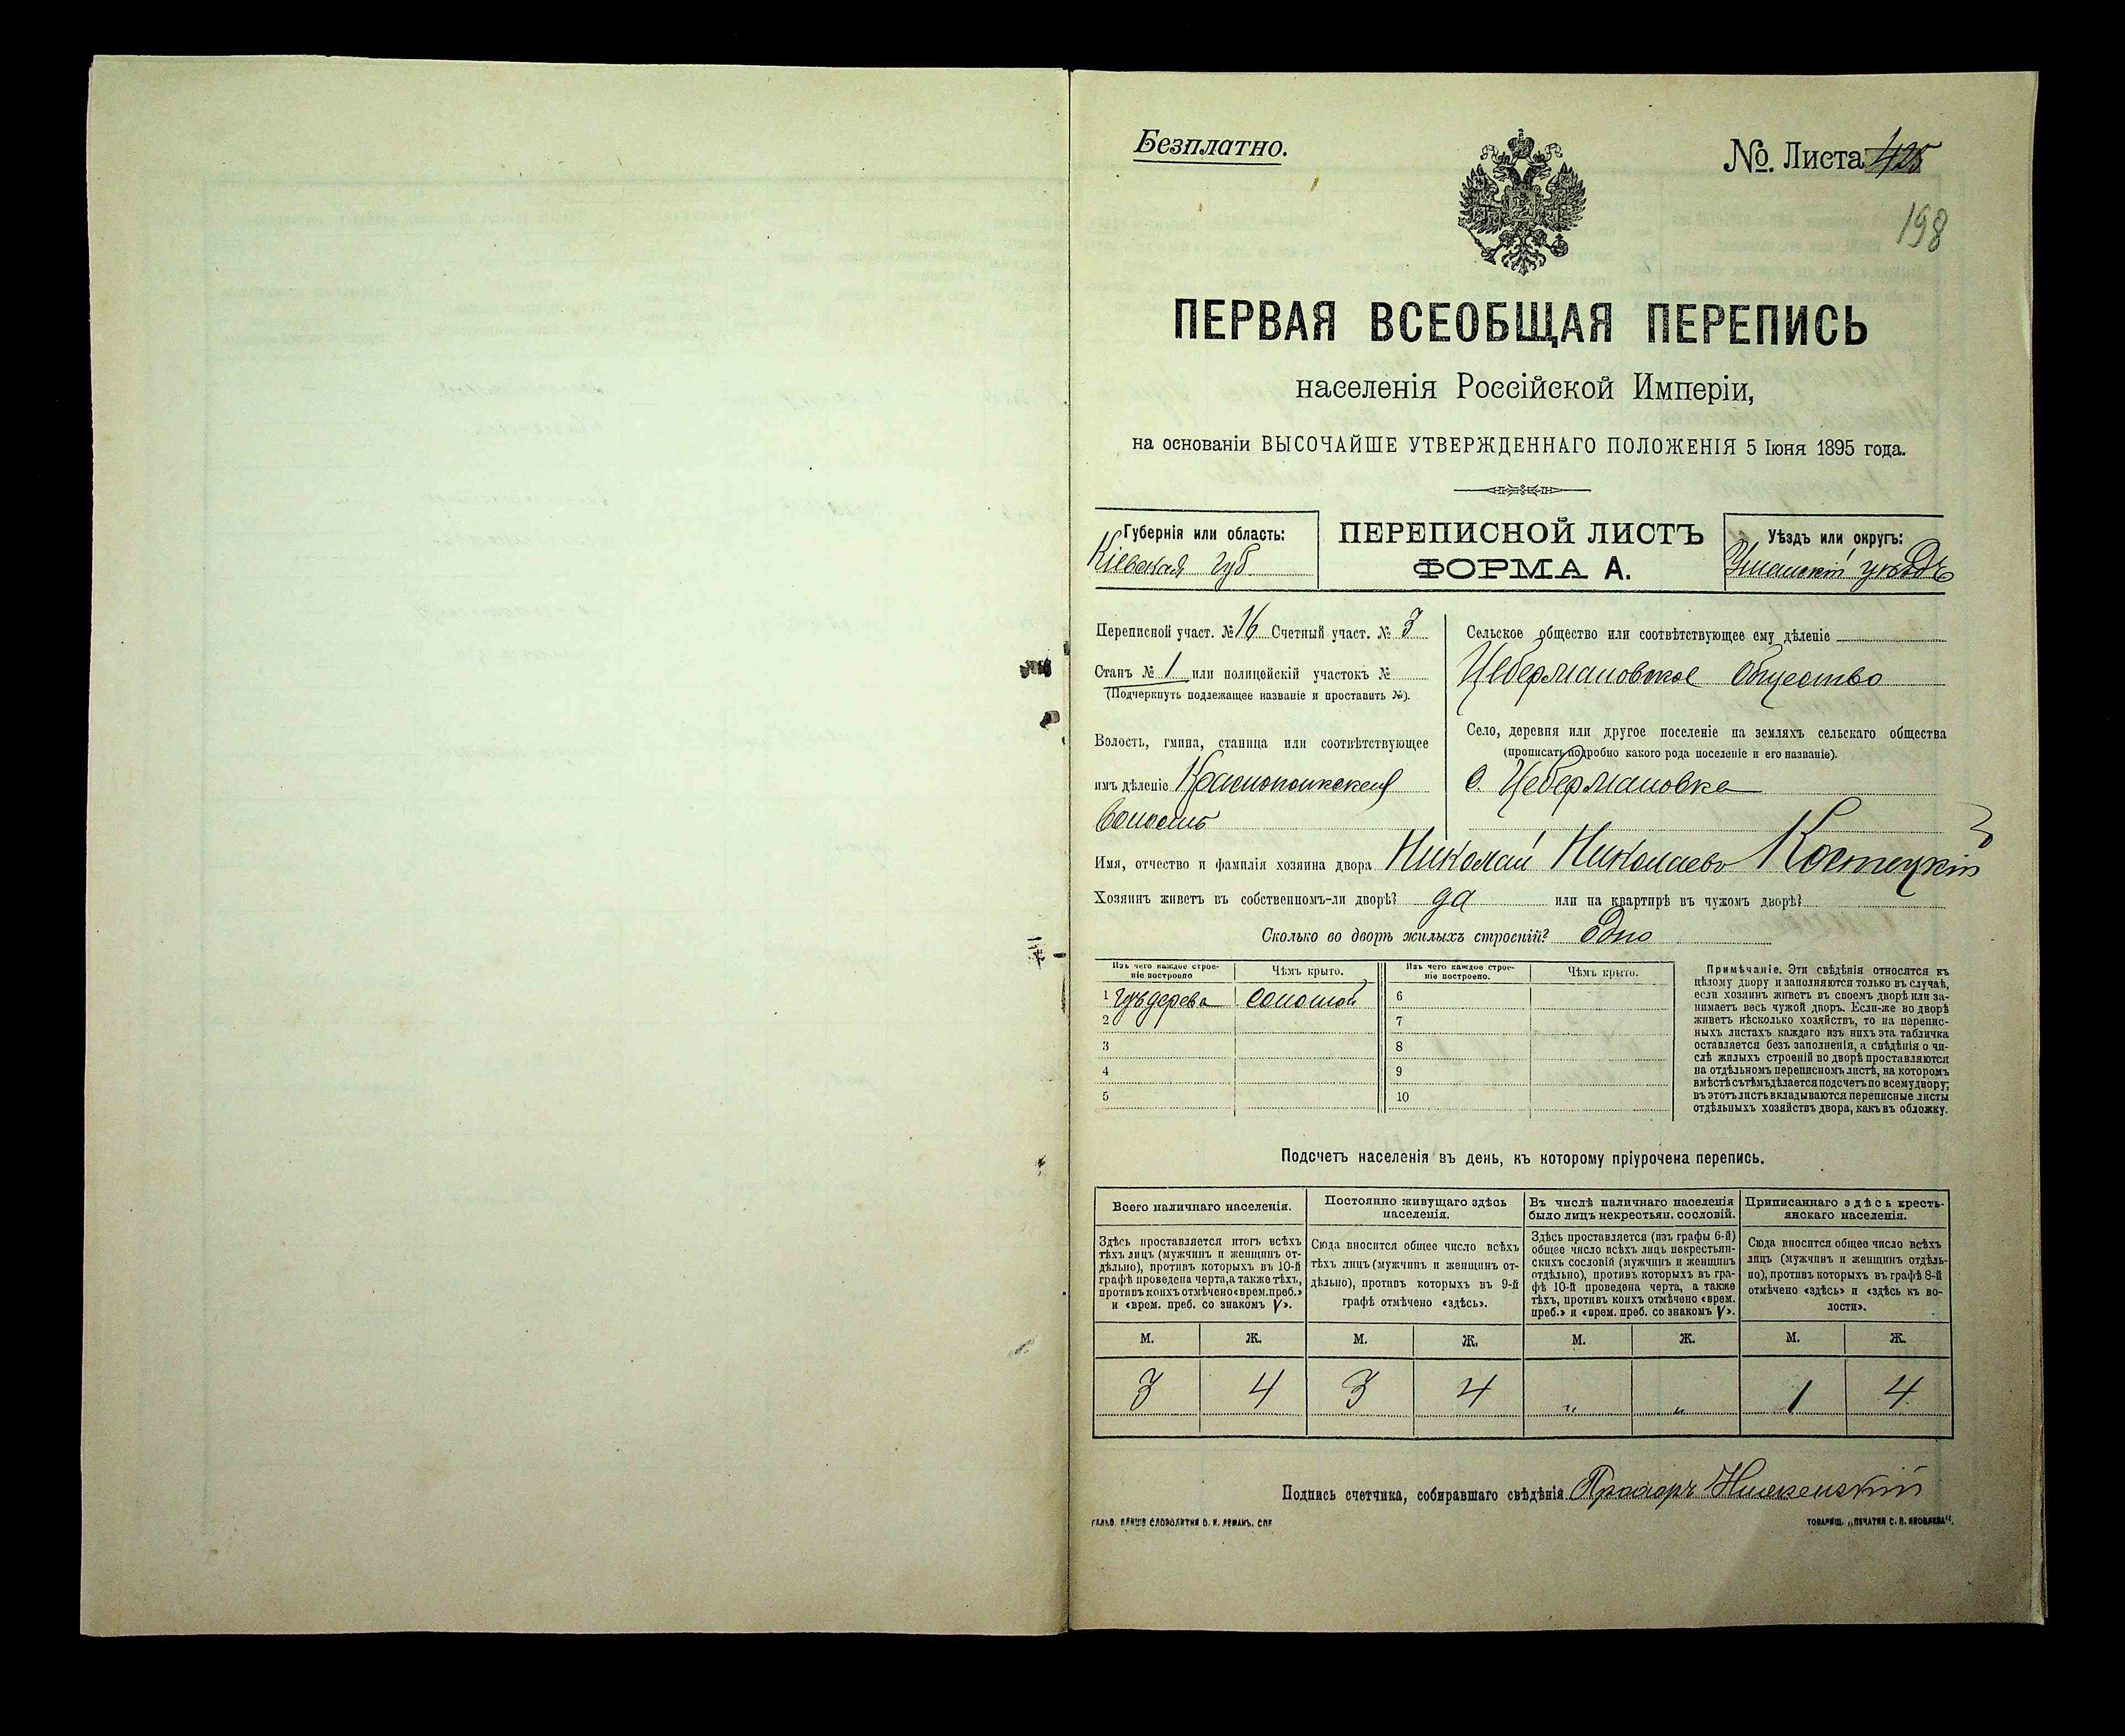 Безплатно.
№. Листа 425
198
ПЕРВАЯ ВСЕОБЩАЯ ПЕРЕПИСЬ
населенія Россійской Имперіи,
на основаніи ВЫСОЧАЙШЕ УТВЕРЖДЕННАГО ПОЛОЖЕНІЯ 5 Іюня 1895 года.
Губернія или область:
Кіевская губ
ПЕРЕПИСНОЙ ЛИСТЪ
ФОРМА А.
Уѣздъ или округъ:
Уманскій уѣздъ
Переписной участ. № 16 Счетный участ. № 3
Станъ № 1 или полицейскій участокъ №
(Подчеркнуть подлежащее названіе и проставить №).
Волость, гмина, станица или соотвѣтствующее
имъ дѣленіе Краснопольская
волость
Сельское общество или соотвѣтствующее ему дѣленіе
Цебермановское Общество
Село, деревня или другое поселеніе на земляхъ сельскаго общества
(прописать подробно какого рода поселеніе и его названіе).
с. Цебермановка
Имя, отчество и фамилія хозяина двора Николай Николаевъ Костецкій
Хозяинъ живетъ въ собственномъ-ли дворѣ? да или на квартирѣ въ чужомъ дворѣ?
Сколько во дворѣ жилыхъ строеній? Одно
Изъ чего каждое строе-
ніе построено
Чѣмъ крыто.
Изъ чего каждое строе-
ніе построено.
Чѣмъ крыто.
1 изъ дерева соломой
2
3
4
5
6
7
8
9
10
Примѣчаніе. Эти свѣдѣнія относятся къ
цѣлому двору и заполняются только въ случаѣ,
если хозяинъ живетъ въ своемъ дворѣ или за-
нимаетъ весь чужой дворъ. Если-же во дворѣ
живетъ нѣсколько хозяйствъ, то на перепис-
ныхъ листахъ каждаго изъ нихъ эта табличка
оставляется безъ заполненія, а свѣдѣнія о чи-
слѣ жилыхъ строеній во дворѣ проставляются
на отдѣльномъ переписномъ листѣ, на которомъ
вмѣстѣ сътѣмъ дѣлается подсчетъ по всему двору;
въ этотъ листъ вкладываются переписные листы
отдѣльныхъ хозяйствъ двора, какъ въ обложку.
Подсчетъ населенія въ день, къ которому пріурочена перепись.
Всего наличнаго населенія.
Постоянно живущаго здѣсь
населенія.
Въ числѣ наличнаго населенія
было лицъ некрестьян. сословій.
Приписаннаго здѣсь кресть-
янскаго населенія.
Здѣсь проставляется итогъ всѣхъ
тѣхъ лицъ (мужчинъ и женщинъ от-
дѣльно), противъ которыхъ въ 10-й
графѣ проведена черта, а также тѣхъ,
противъ коихъ отмѣчено «врем. преб.»
и «врем. преб. со знакомъ V».
Сюда вносится общее число всѣхъ
тѣхъ лицъ (мужчинъ и женщинъ от-
дѣльно), противъ которыхъ въ 9-й
графѣ отмѣчено «здѣсь».
Здѣсь проставляется (изъ графы 6-й)
общее число всѣхъ лицъ некрестьян-
скихъ сословій (мужчинъ и женщинъ
отдѣльно), противъ которыхъ въ гра-
фѣ 10-й проведена черта, а также
тѣхъ, противъ коихъ отмѣчено «врем.
преб.» и «врем. преб. со знакомъ V».
Сюда вносится общее число всѣхъ
лицъ (мужчинъ и женщинъ отдѣль-
но), противъ которыхъ въ графѣ 8-й
отмѣчено «здѣсь» и «здѣсь къ во-
лости».
М. Ж. М. Ж. М. Ж. М. Ж.
3 4 3 4 „ „ 1 4
Подпись счетчика, собиравшаго свѣдѣнія
ТОВАРИЩ. „ПЕЧАТНЯ С. П. ЯКОВЛЕВА“.